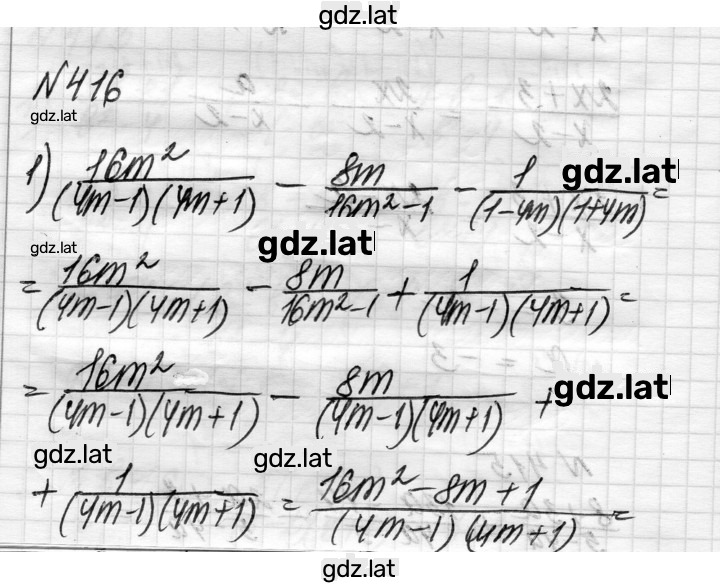 gdz.lat
N 416
gdz.lat
1) 16m²/((4m-1)(4m+1)) - 8m/(16m²-1) - 1/((1-4m)(1+4m)) =
gdz.lat
gdz.lat
gdz.lat
= 16m²/((4m-1)(4m+1)) - 8m/(16m²-1) + 1/((4m-1)(4m+1)) =
= 16m²/((4m-1)(4m+1)) - 8m/((4m-1)(4m+1)) +
gdz.lat
gdz.lat
gdz.lat
+ 1/((4m-1)(4m+1)) = (16m²-8m+1)/((4m-1)(4m+1)) =
gdz.lat